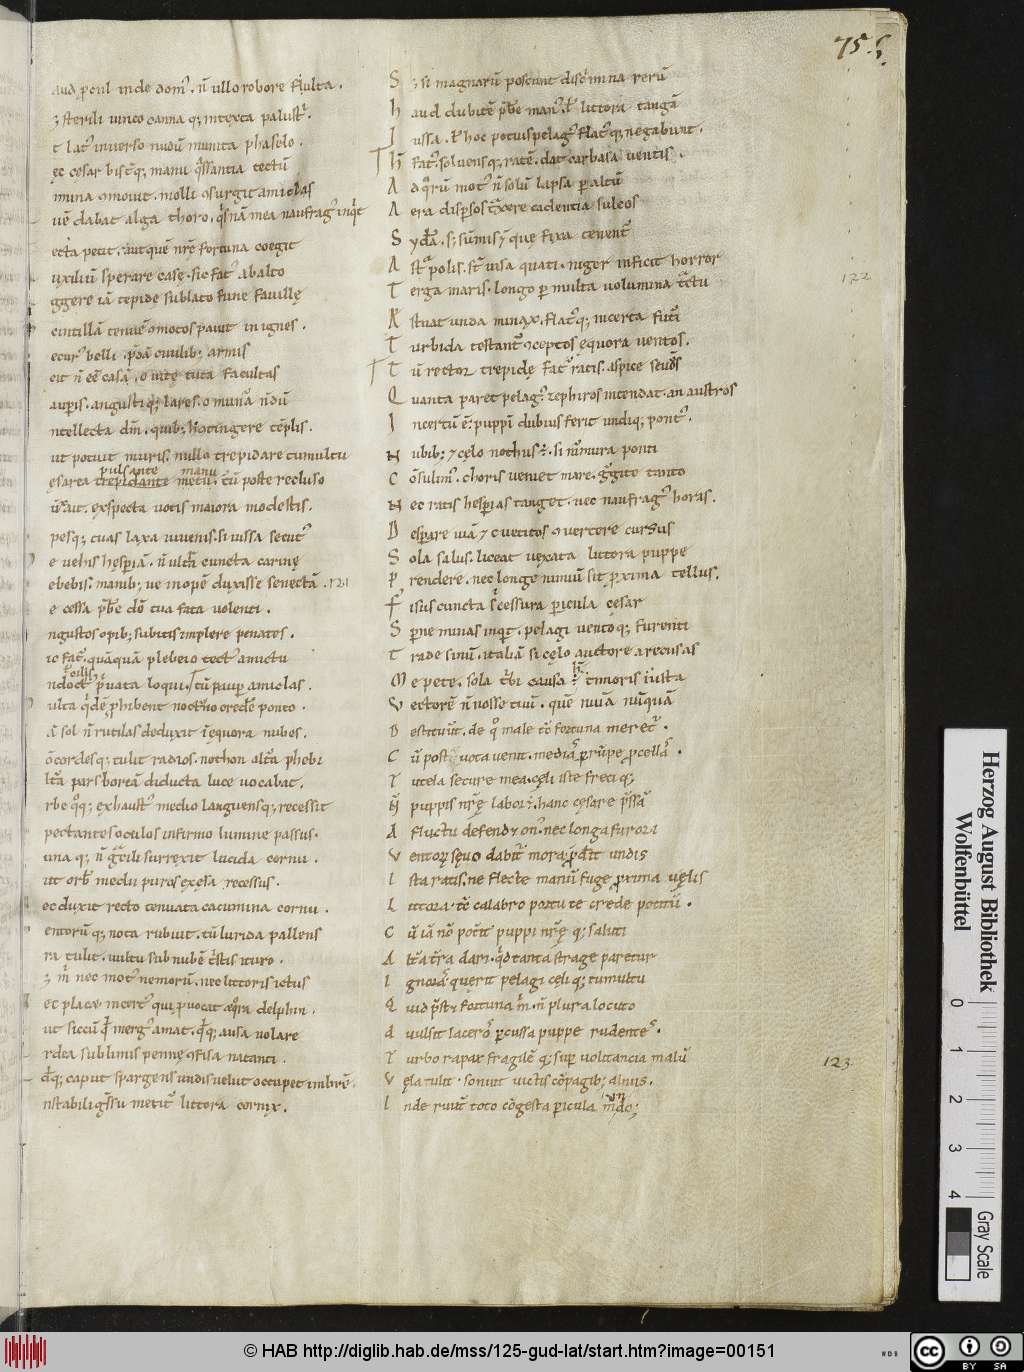 75.
aud ꝓcul inde domꝰ. n̄ ullo robore fulta.
ꝫ sterili iunco canna qꝫ intexta palustrͥ.
t latꝰ inuerso nudū munita phaselo.
ęc cesar bis tͤqꝫ manu qͣssantia tectū
imina ꝯmouit. molli ꝯsurgit amiclas
uē dabat alga thoro. qͥsnā mea naufragꝰ inqͥt
ecta petit. aut quē nrē fortuna coegit
uxiliū sperare casę. sic fatꝰ ab alto
ggere iā tepide sublato fune fauillę
cintillā tenuē ꝯmotos pauit in ignes.
ecurꝰ belli. p̄dā ciuilibꝫ armis
cit n̄ eē casā. o uitę tuta facultas
auꝑis. angusti qꝫ lares. o munͣa n̄dū
ntellecta dm̄. quibꝫ h̓ ctingere tēplis.
ut potuit muris. nullo trepidare tumultu
pulsante manu
ęsarea trepidante metu. tū poste recluso
exspecta uotis maiora modestis.
pesqꝫ tuas laxa iuuenis. si iussa secutꝰ
e uehis hęsperiā. n̄ ultͣ cuncta carinę
ebebis. manibꝫ ue inopē duxisse senectā. 121
e cessa p̄bere do tua fata uolenti.
ngustos opibꝫ subitis implere penates.
ic fatꝰ. quāquā plebeio tectꝰ amictu
ndocilis p̄uata loqui. tū pauꝑ amiclas.
ulta qͥdē ꝓhibent nocturno credere ponto.
ā sol n̄ rutilas deduxit ī equora nubes.
ōcordesqꝫ tulit radios. nothon altͣa phebi
ltͣa pars boreā diducta luce uocabat.
rbe qͦqꝫ exhaustꝰ medio languensqꝫ recessit
pectantes oculos infirmo lumine passus.
una qꝫ n̄ gͣcili surrexit lucida cornu.
ut orbis medii puros exesa recessus.
ec duxit recto tenuata cacumina cornu.
entorū qꝫ nota rubuit. tū lurida pallens
ra tulit. uultu sub nubē tͥstis ituro.
ꝫ m̄ nec motꝰ nemorū. nec littoris ictus
ec placet incertꝰ qui ꝓuocat ęqͦra delphin.
ut siccū qͥ mergꝰ amat. qͦqꝫ ausa uolare
rdea sublimis pennę ꝯfisa natanti.
qͦqꝫ caput spargens undis uelut occupet imbrē.
nstabili gͣssu metitͬ littora cornix.
S ꝫ si magnarū poscunt discͥmina rerū
h aud dubitē p̄bere manꝰ. ł littora tangā
I ussa. ł hoc potius pelagꝰ flatꝰqꝫ negabunt.
h̄ fatꝰ. soluensqꝫ ratē. dat carbasa uentis.
A d qͦrū motꝰ n̄ solū lapsa ꝑ altū
A era disꝑsos tͣxere cadentia sulcos
S ydͣa. sꝫ sūmis ÷ quę fixa tenentͬ
A stͣ polis. st̄ uisa quati. niger inficit horror
T erga maris. longo ꝑ multa uolumina tͣctu
A stuat unda minax. flatꝰqꝫ incerta futͥ
T urbida testantͬ ꝯceptos ęquora uentos.
T ū rector trepidę fatꝰ ratis. aspice seuū
Q uanta paret pelagꝰ. zephiros intendat. an austros
I ncertū ē. puppī dubius ferit undiqꝫ pontꝰ.
N ubibꝫ ⁊ cęlo nothus ÷. si mͬmura ponti
C ōsulimꝰ. choris ueniet mare. gͥgite tanto
N ec ratis hesꝑias tanget. nec naufragꝰ horas.
D esꝑare uiā ⁊ uetitos ꝯuertere cursus
S ola salus. liceat uexata littora puppe
P rendere. nec longe nimiū sit ꝓxima tellus.
F isus cuncta sͥ cessura ꝑicula cęsar
S ꝑne minas inquit. pelagi uento qꝫ furenti
T rade sinū. italiā si cęlo auctore recusas
M e pete. sola tͥbi causa h̄ ÷ timoris iusta
V ectorē n̄ nosse tuū. quē nuīa nūquā
D estituūt. de qͦ male tc̄ fortuna meretͬ.
C ū post uota uenit. mediaˢ ꝑrūpe ꝓcellaˢ.
T utela secure mea. cęli iste freti qꝫ
N̄ puppis nrę labor ÷. hanc cęsare p̄ssā
A fluctu defendet onꝰ. nec longa furori
V entoꝝ sęuo dabitͬ mora ꝓderit undis
I sta ratis. ne flecte manū fuge ꝓxima uęlis
L ittora. tc̄ calabro portu te crede potitū.
C ū iā n̄ poterit puppi nrę qꝫ saluti
A ltͣa tͬra dari. qͥd tanta strage paretur
I gnoras? quęrit pelagi cęli qꝫ tumultu
Q uid p̄stet fortuna m̄. n̄ plura locuto
A uulsit lacerōˢ ꝑcussa puppe rudenteˢ.
T urbo rapax fragilē qꝫ suꝑ uolitantia malū
V ęla tulit. sonuit uictis cōpagibꝫ alnus.
I nde ruūt toto cōgesta ꝑicula mūdo;
122
123
Herzog August Bibliothek
Wolfenbüttel
0 1 2 3 4
Gray Scale
© HAB http://diglib.hab.de/mss/125-gud-lat/start.htm?image=00151
WDB
cc BY SA